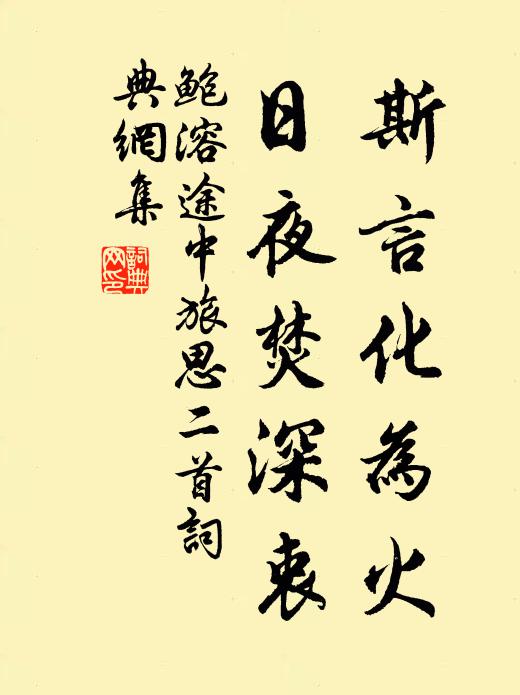 斯言化為火
日夜焚深衷
鲍溶途中旅思二首詞
典網集
詞典网印